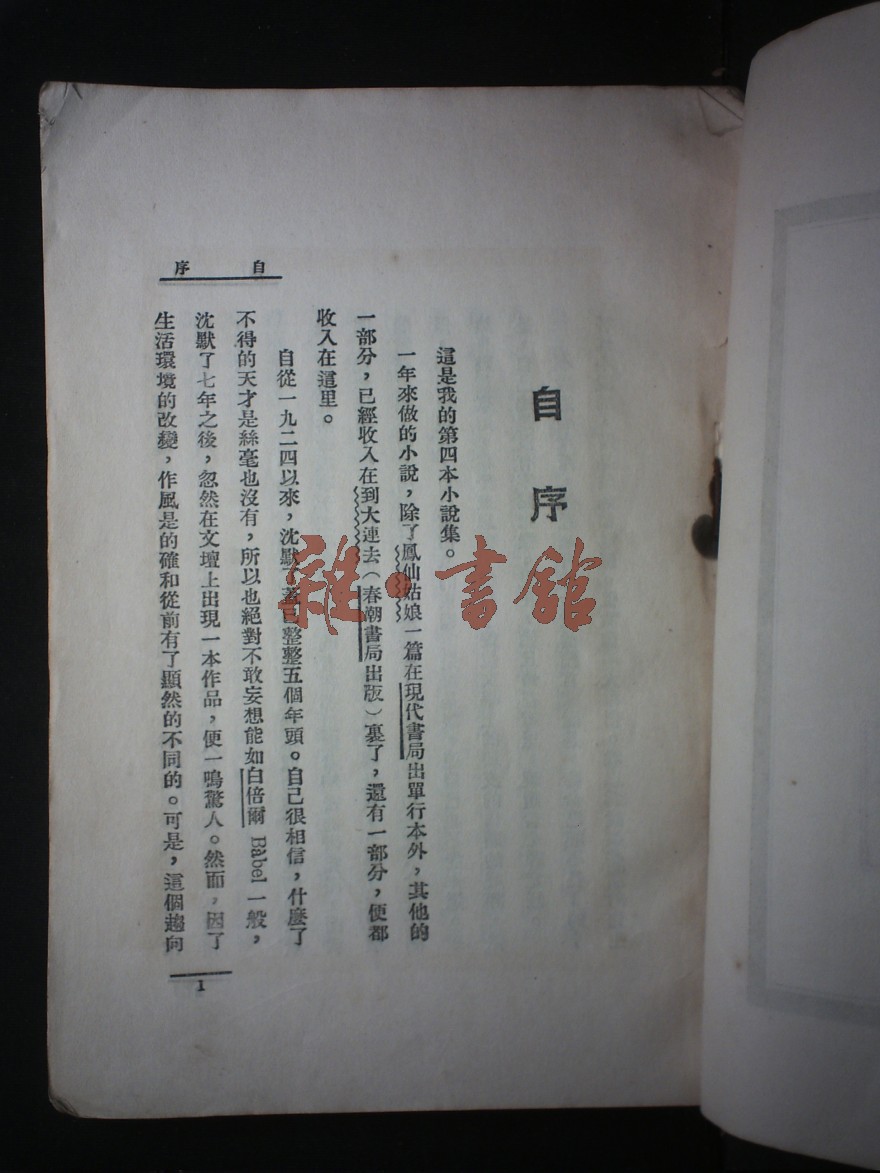 自序
自序
這是我的第四本小說集。
一年來做的小說，除了鳳仙姑娘一篇在現代書局出單行本外，其他的
一部分，已經收入在到大連去（春潮書局出版）裏了，還有一部分，便都
收入在這里。
自從一九二四以來，沈默了蓋已整整五個年頭。自己很相信，什麼了
不得的天才是絲毫也沒有，所以也絕對不敢妄想能如白倍爾 Babel 一般，
沈默了七年之後，忽然在文壇上出現一本作品，便一鳴驚人。然而，因了
生活環境的改變，作風是的確和從前有了顯然的不同的。可是，這個趨向
1
雜·書館